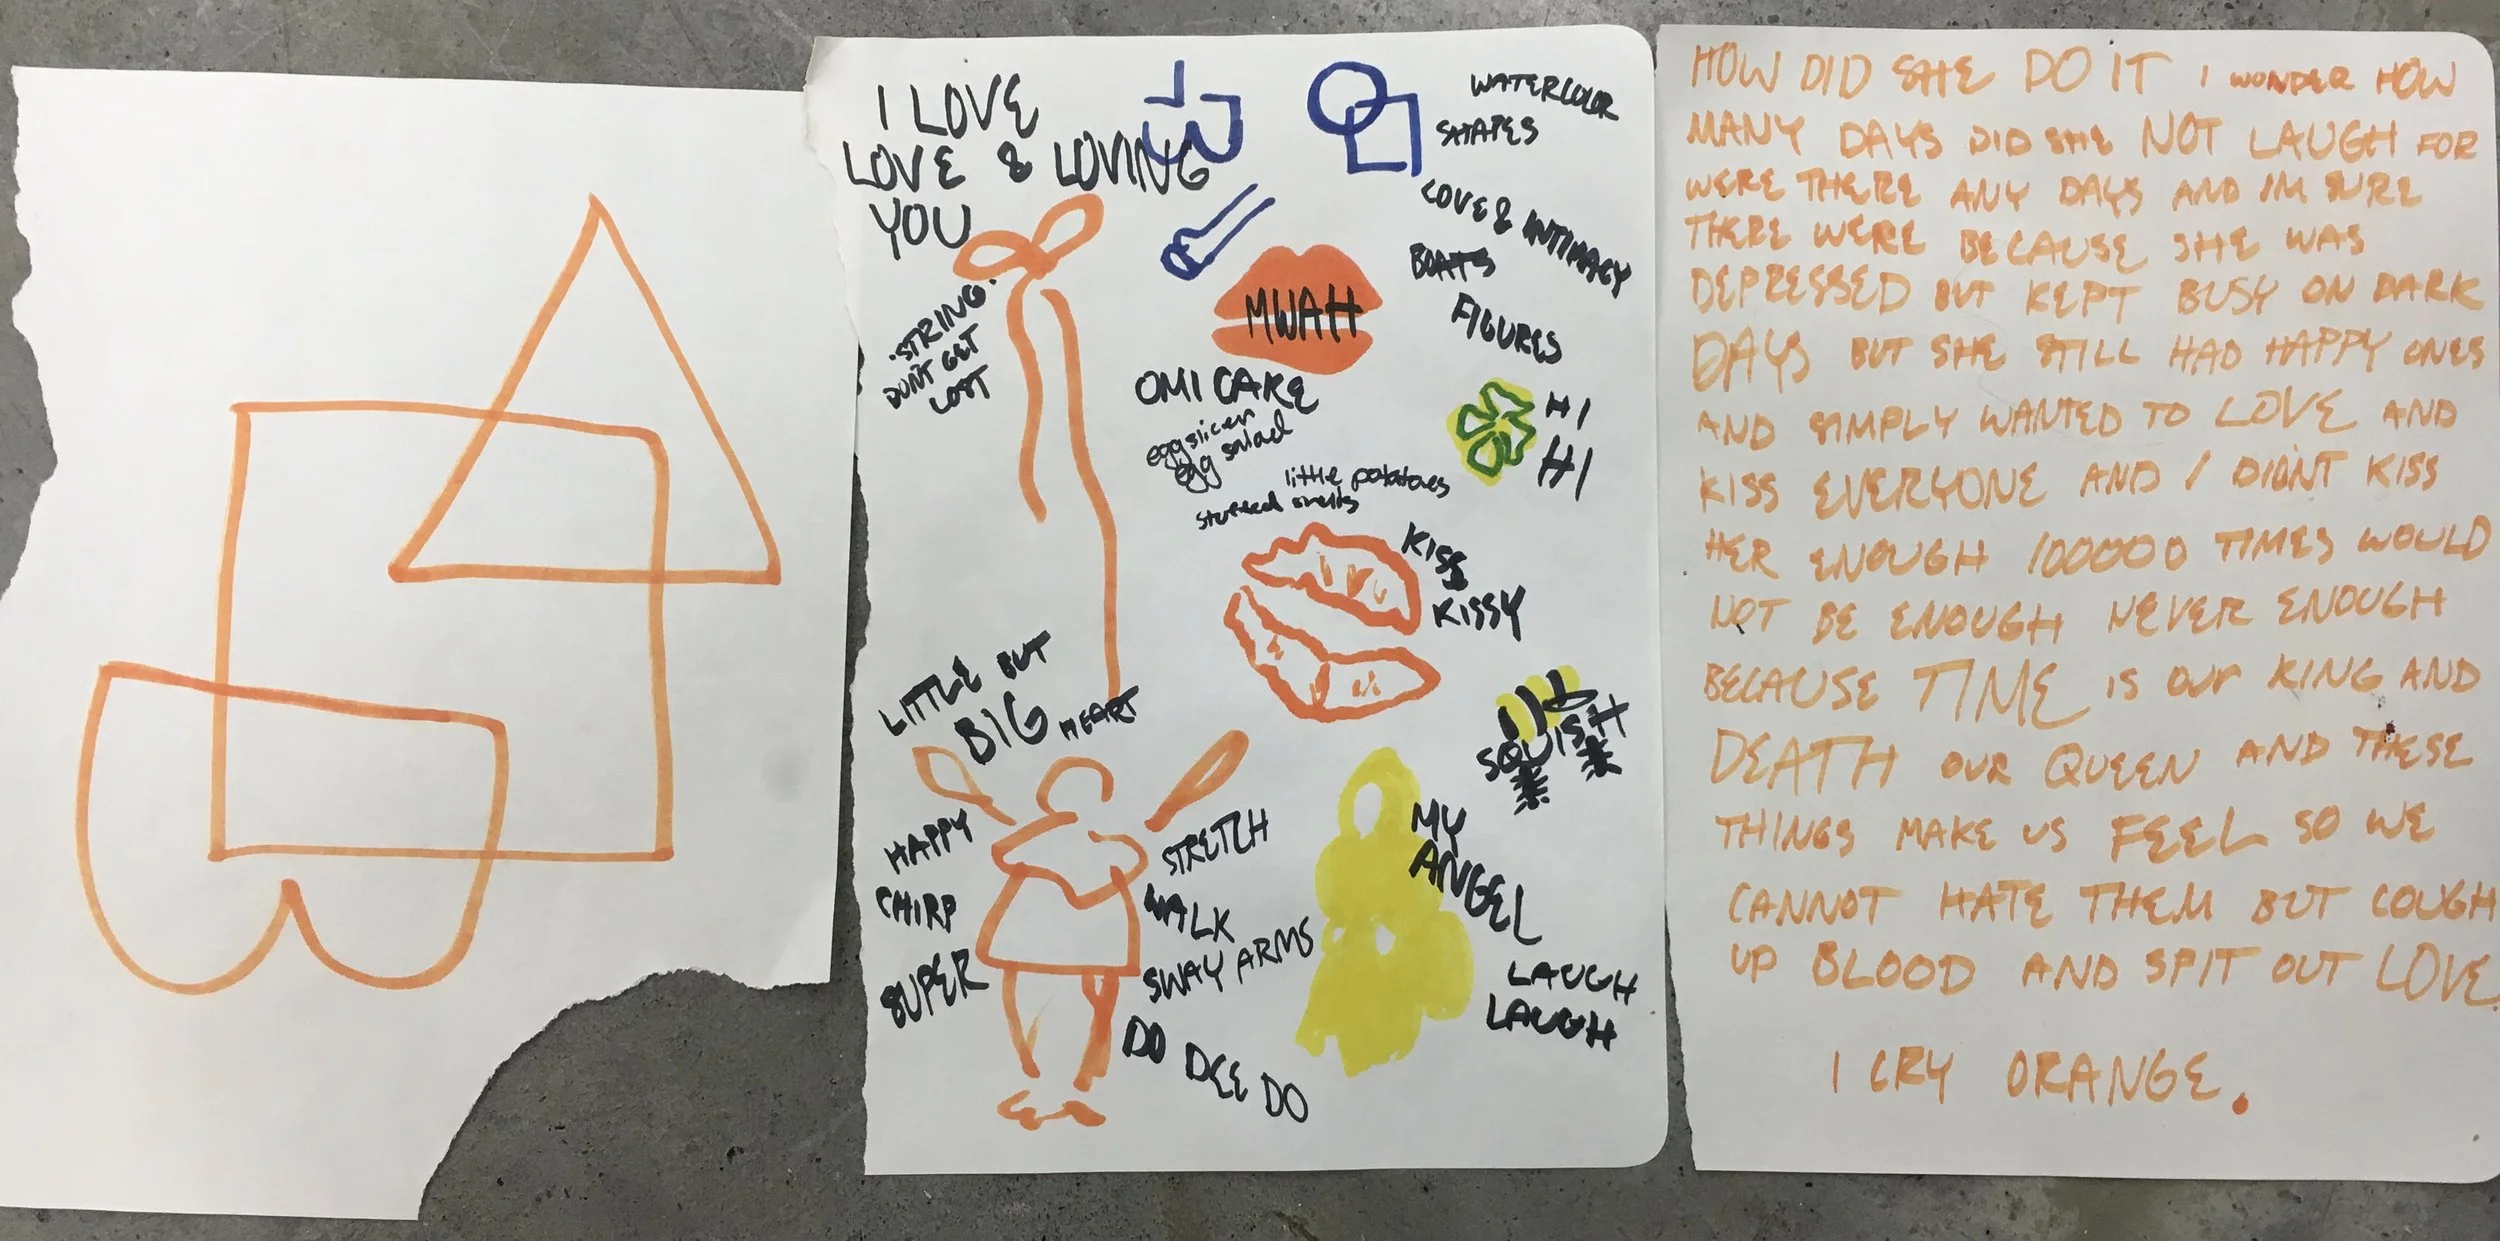 I LOVE
LOVE & LOVING
YOU
WATERCOLOR
SHAPES
LOVE & INTIMACY
BOATS
FIGURES
STRING
DON'T GET
LOST
MWAH
OMI CAKE
egg slicer
egg salad
little potatoes
stuffed smelts
HI
HI
KISS
KISSY
LITTLE BUT
BIG HEART
SQUISH
HAPPY
CHIRP
SUPER
STRETCH
WALK
SWAY ARMS
DO DEE DO
MY
ANGEL
LAUGH
LAUGH
HOW DID SHE DO IT I WONDER HOW
MANY DAYS DID SHE NOT LAUGH FOR
WERE THERE ANY DAYS AND IM SURE
THERE WERE BECAUSE SHE WAS
DEPRESSED BUT KEPT BUSY ON DARK
DAYS BUT SHE STILL HAD HAPPY ONES
AND SIMPLY WANTED TO LOVE AND
KISS EVERYONE AND I DIDN'T KISS
HER ENOUGH 100000 TIMES WOULD
NOT BE ENOUGH NEVER ENOUGH
BECAUSE TIME IS OUR KING AND
DEATH OUR QUEEN AND THESE
THINGS MAKE US FEEL SO WE
CANNOT HATE THEM BUT COUGH
UP BLOOD AND SPIT OUT LOVE.
I CRY ORANGE.